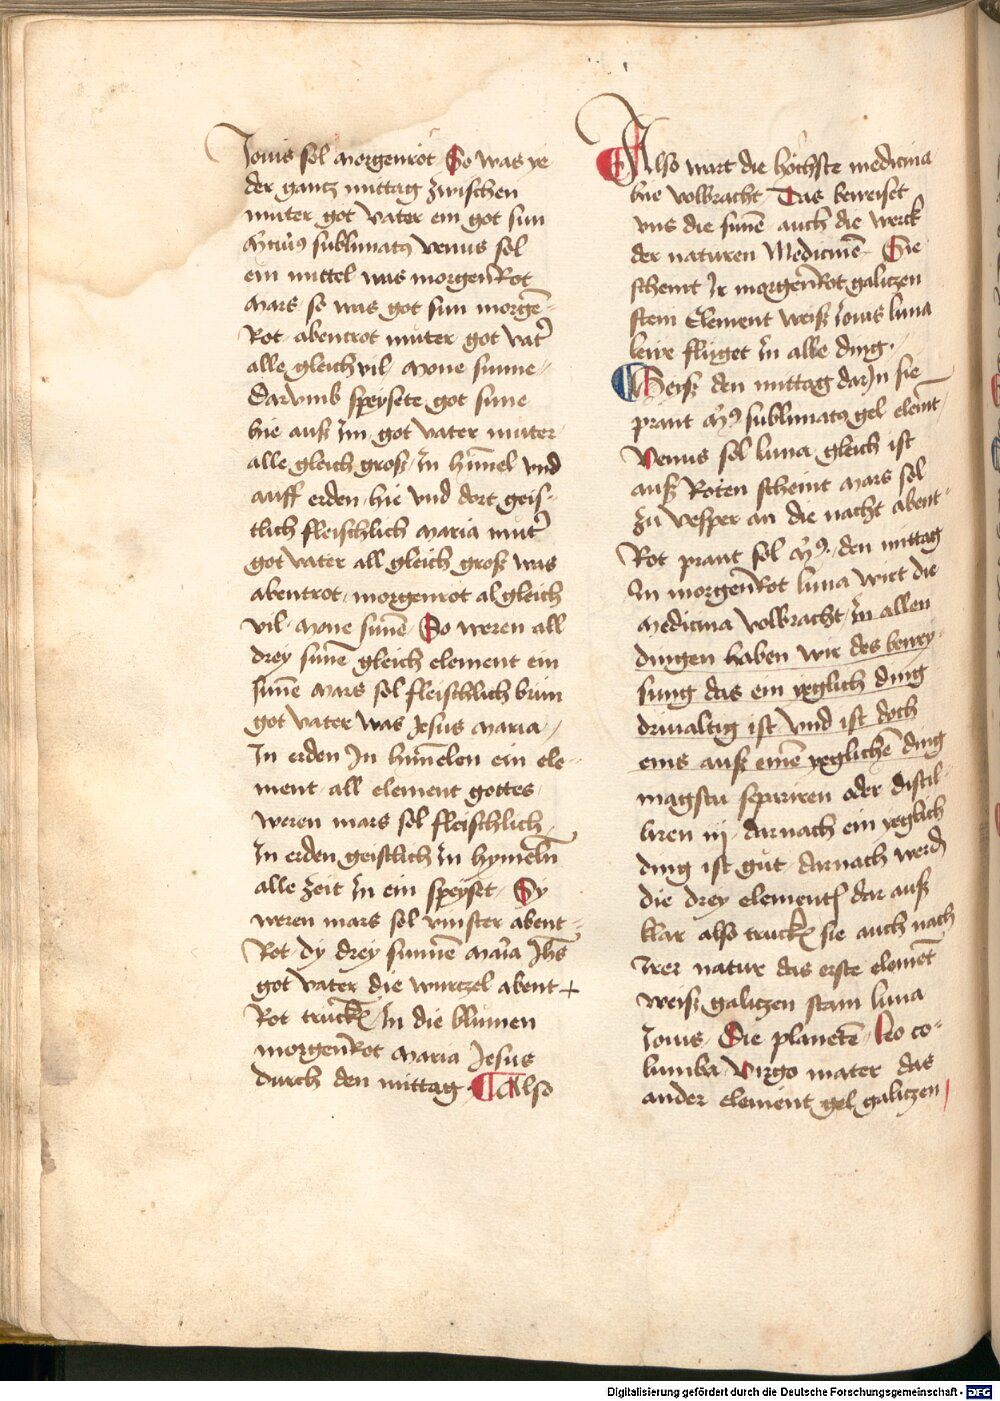 Jouis sol morgenrot So was ye
der gantz mittag zwischen
muter got vater ein got sun
sublimatus venus sol
ein mittel was morgenRot
mars so was got sun morgē-
Rot abentrot muter got vat
alle gleich vil mone sunne
darvmb speysete got sune
hie auß Im got vater muter
alle gleich groß In himel vnd
auff erden hie vnd dort geis-
tlich fleischlich maria mut
got vater all gleich groß was
abentrot morgenrot al gleich
vil mone sunē So weren all
drey sunē gleich element ein
sunē mars sol fleischlich
got vater was Jesus maria
In erden In himelen ein ele-
ment all element gottes
weren mars sol fleischlich
In erden geistlich In hymeln
alle zeit In ein speyset Sy
weren mars sol vinster abent-
Rot dy drey sunnē maria Jhs
got vater die wurczel abent
Rot In die blumen
morgenRot maria Jesus
durch den mittag Also
Also wart die hochste medicina
hie volbracht Das beweiset
vns die sunē auch die werck
der naturen Medicinē Sie
scheint Ir morgenRot galiczen
stein Element weiß Jouis luna
leire flüget In alle ding
Weiß den mittag darJn sie
prant sublimatus gel elemt
Venus sol luna gleich ist
auß Roten scheint mars sol
zu vesper an die nacht abent-
Rot prant sol den mittag
In morgenRot luna wirt die
medicina volbracht In allen
dingen haben wir des bewey-
sung das ein yeglich ding
driualtig ist vnd ist doch
eins auß einē yeglichē ding
magstu separiren oder distil-
liren iij darnach ein yeglich
ding ist gut darnach werd
die drey element dar auß
klar also sie auch nach
Irer natur das erste elemēt
weiß galiczen stain luna
Jouis Die planetē Leo co-
lumba Virgo mater das
ander element gel galiczen
Digitalisierung gefördert durch die Deutsche Forschungsgemeinschaft - DFG